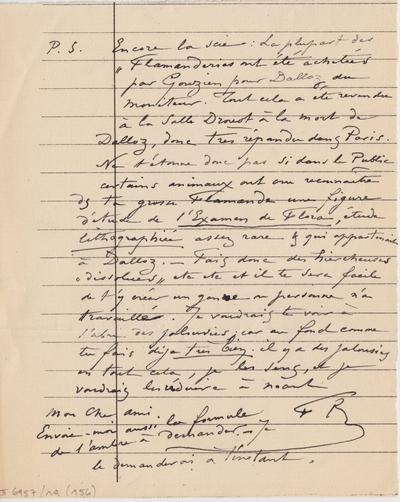 P. S. Encore la scie : La plupart des
"Flamanderies ont été achetées
par Gouzien pour Dalloz du
moniteur. Tout cela a été revendu
à la Salle Drouot à la mort de
Dalloz, donc très répandu dans Paris.
Ne t'étonne donc pas si dans le Public
certains animaux ont cru reconnaître
ds ta grosse Flamande une figure
d'étude de l'Examen de Flora, étude
lithographiée assez rare & qui appartenait
à Dalloz. — Fais donc des hiercheuses
"dissolues" etc etc et il te sera facile
de t'y créer un genre où personne n'a
travaillé. Je voudrais te voir à
l'abri des jalousies, car au fond comme
tu fais déjà très bien il y a des jalousies
en tout cela, je les sens, et je
voudrais les réduire à néant
Mon Cher ami. F R
Envoie-moi aussi la formule
de l'ambre à demander. — Je
le demanderai à l'instant.
6957/ (156)